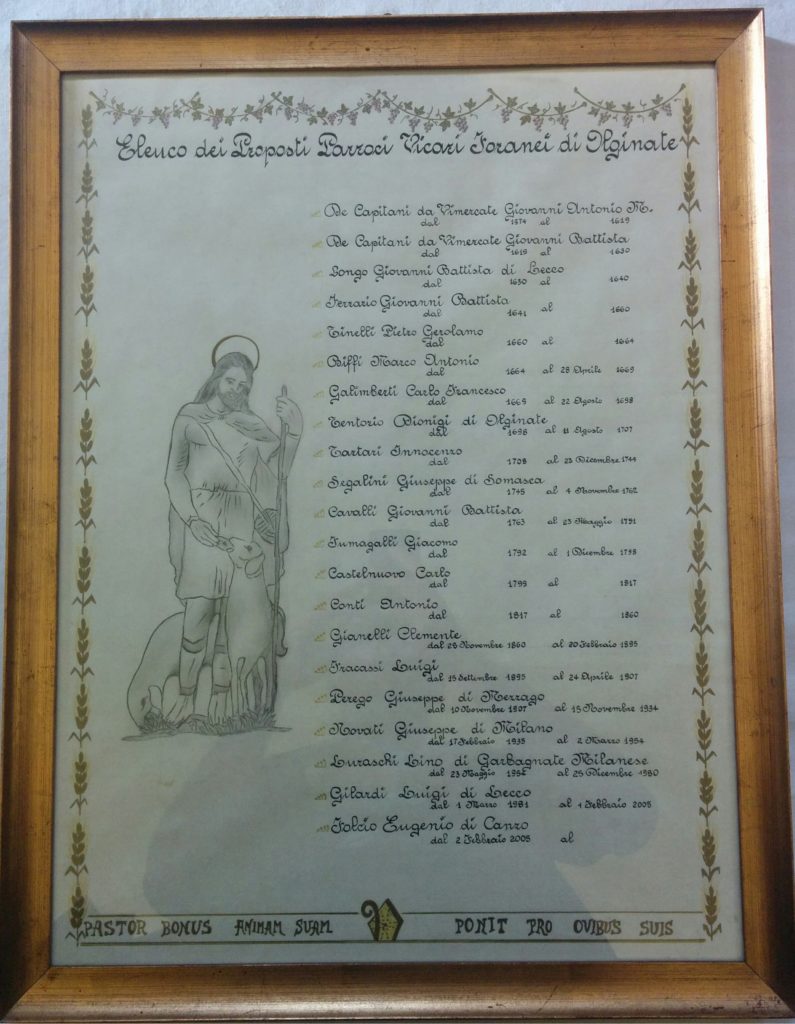 Elenco dei Proposti Parroci Vicari Foranei di Olginate
De Capitani da Vimercate Giovanni Antonio M.
dal 1574 al 1619
De Capitani da Vimercate Giovanni Battista
dal 1619 al 1630
Longo Giovanni Battista di Lecco
dal 1630 al 1640
Ferrario Giovanni Battista
dal 1641 al 1660
Tinelli Pietro Gerolamo
dal 1660 al 1664
Biffi Marco Antonio
dal 1664 al 28 Aprile 1669
Galimberti Carlo Francesco
dal 1669 al 22 Agosto 1698
Tentorio Dionigi di Olginate
dal 1698 al 11 Agosto 1707
Tartari Innocenzo
dal 1708 al 23 Dicembre 1744
Segalini Giuseppe di Somasca
dal 1745 al 4 Novembre 1762
Cavalli Giovanni Battista
dal 1763 al 23 Maggio 1791
Fumagalli Giacomo
dal 1792 al 1 Dicembre 1798
Castelnuovo Carlo
dal 1799 al 1817
Conti Antonio
dal 1817 al 1860
Gianelli Clemente
dal 28 Novembre 1860 al 20 Febbraio 1895
Fracassi Luigi
dal 15 Settembre 1895 al 24 Aprile 1907
Perego Giuseppe di Merzago
dal 10 Novembre 1907 al 15 Novembre 1934
Novati Giuseppe di Milano
dal 17 Febbraio 1935 al 2 Marzo 1954
Luraschi Lino di Garbagnate Milanese
dal 23 Maggio 1954 al 25 Dicembre 1980
Gilardi Luigi di Lecco
dal 1 Marzo 1981 al 1 Febbraio 2005
Folcio Eugenio di Canzo
dal 2 Febbraio 2005 al
PASTOR BONUS ANIMAM SUAM PONIT PRO OVIBUS SUIS